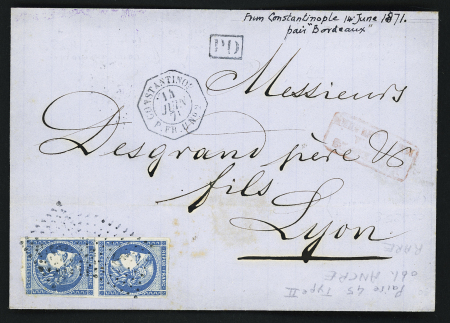 From Constantinople 14 June 1871.
pair "Bordeaux"
PD
CONSTANTINO
14
JUIN
71
Messieurs
Desgrand père &
fils
Lyon
Paire 45 Type II
obl. ANCRE
RARE